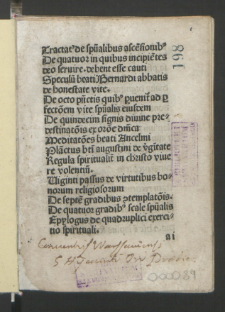 Tractat⁹ de spūalibus ascēsionib⁹
De quatuor in quibus incipiētes
deo seruire debent esse cauti
Speculū beati Bernardi abbatis
de honestate vite.
De octo pūctis quib⁹ ꝑuenit̄ ad ꝑ
fectōem vite spūalis eiusdem
De quindecim signis diuine pre
destinatōis ex oröe dn̄ica
Meditatōes beati Anselmi
Plāctus bt̄i augustini de v̄gitate
Regula spiritualit̄ in christo viue
re volentiū.
Uiginti passus de virtutibus bo
norum religiosorum
De septē gradibus ꝯtemplatōis.
De quatuor gradib⁹ scale spūalis
Epylogus de quadruplici exerci
tio spirituali.
ai
Conventus
S. Hyacinthi
198